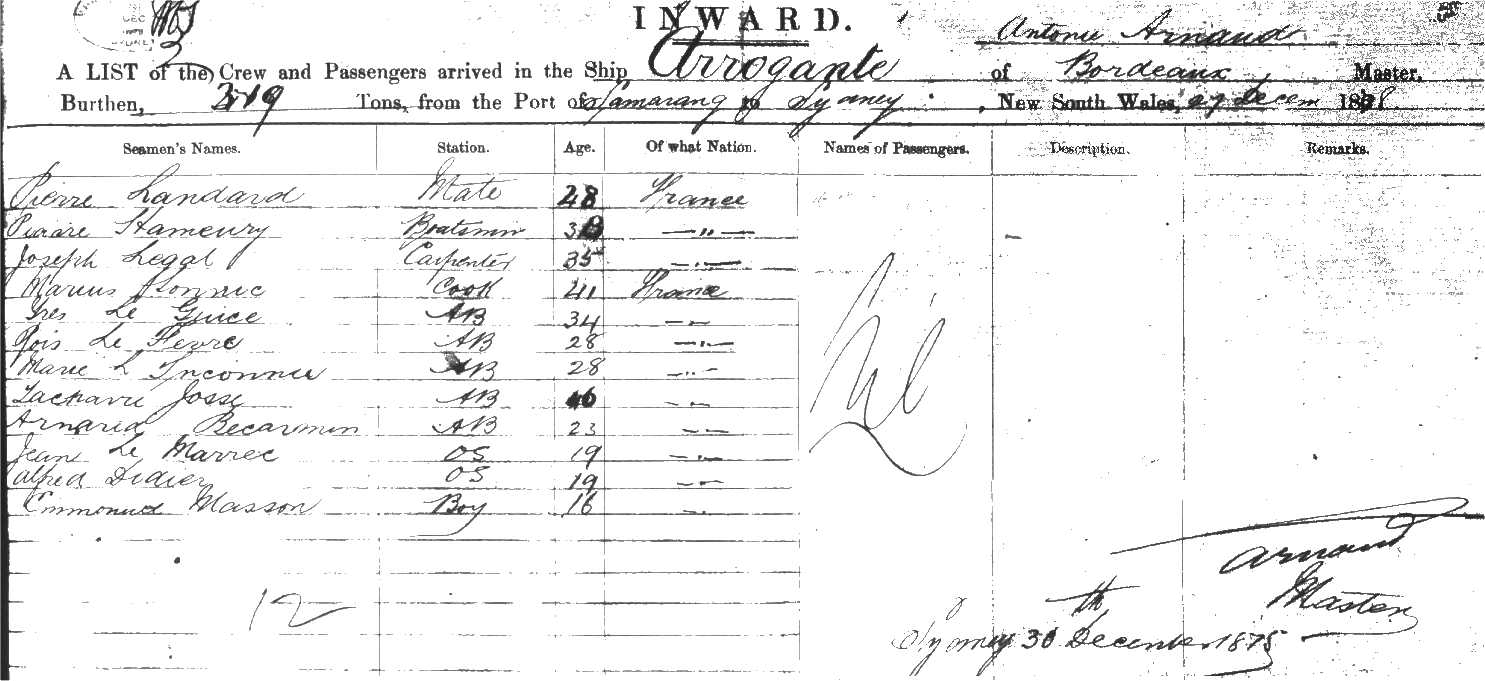 INWARD.
Antonie Arnaud
A LIST of the Crew and Passengers arrived in the Ship Arrogante of Bordeaux, Master,
Burthen, 319 Tons, from the Port of Samarang to Sydney, New South Wales, 29 Decem 1878.
Seamen's Names. Station. Age. Of what Nation. Names of Passengers. Description. Remarks.
Pierre Landard Mate 28 France
Pierre Hameury Boatsmin —„—
Joseph Legal Carpenter 35 —„—
Marius Connic Cook 41 France
Ives Le Guice AB 34 —„—
Le Fevre AB 28 —„—
Marie L Inconnu AB 28 —„—
Zackarie Josse AB —„—
Arnaud Becarmin AB 23 —„—
Jean Le Marrec OS 19 —„—
Alfred Didier OS 19 —„—
Emmanuel Masson Boy 16 „
Nil
12
Arnaud
Master
th
Sydney 30 December 1878